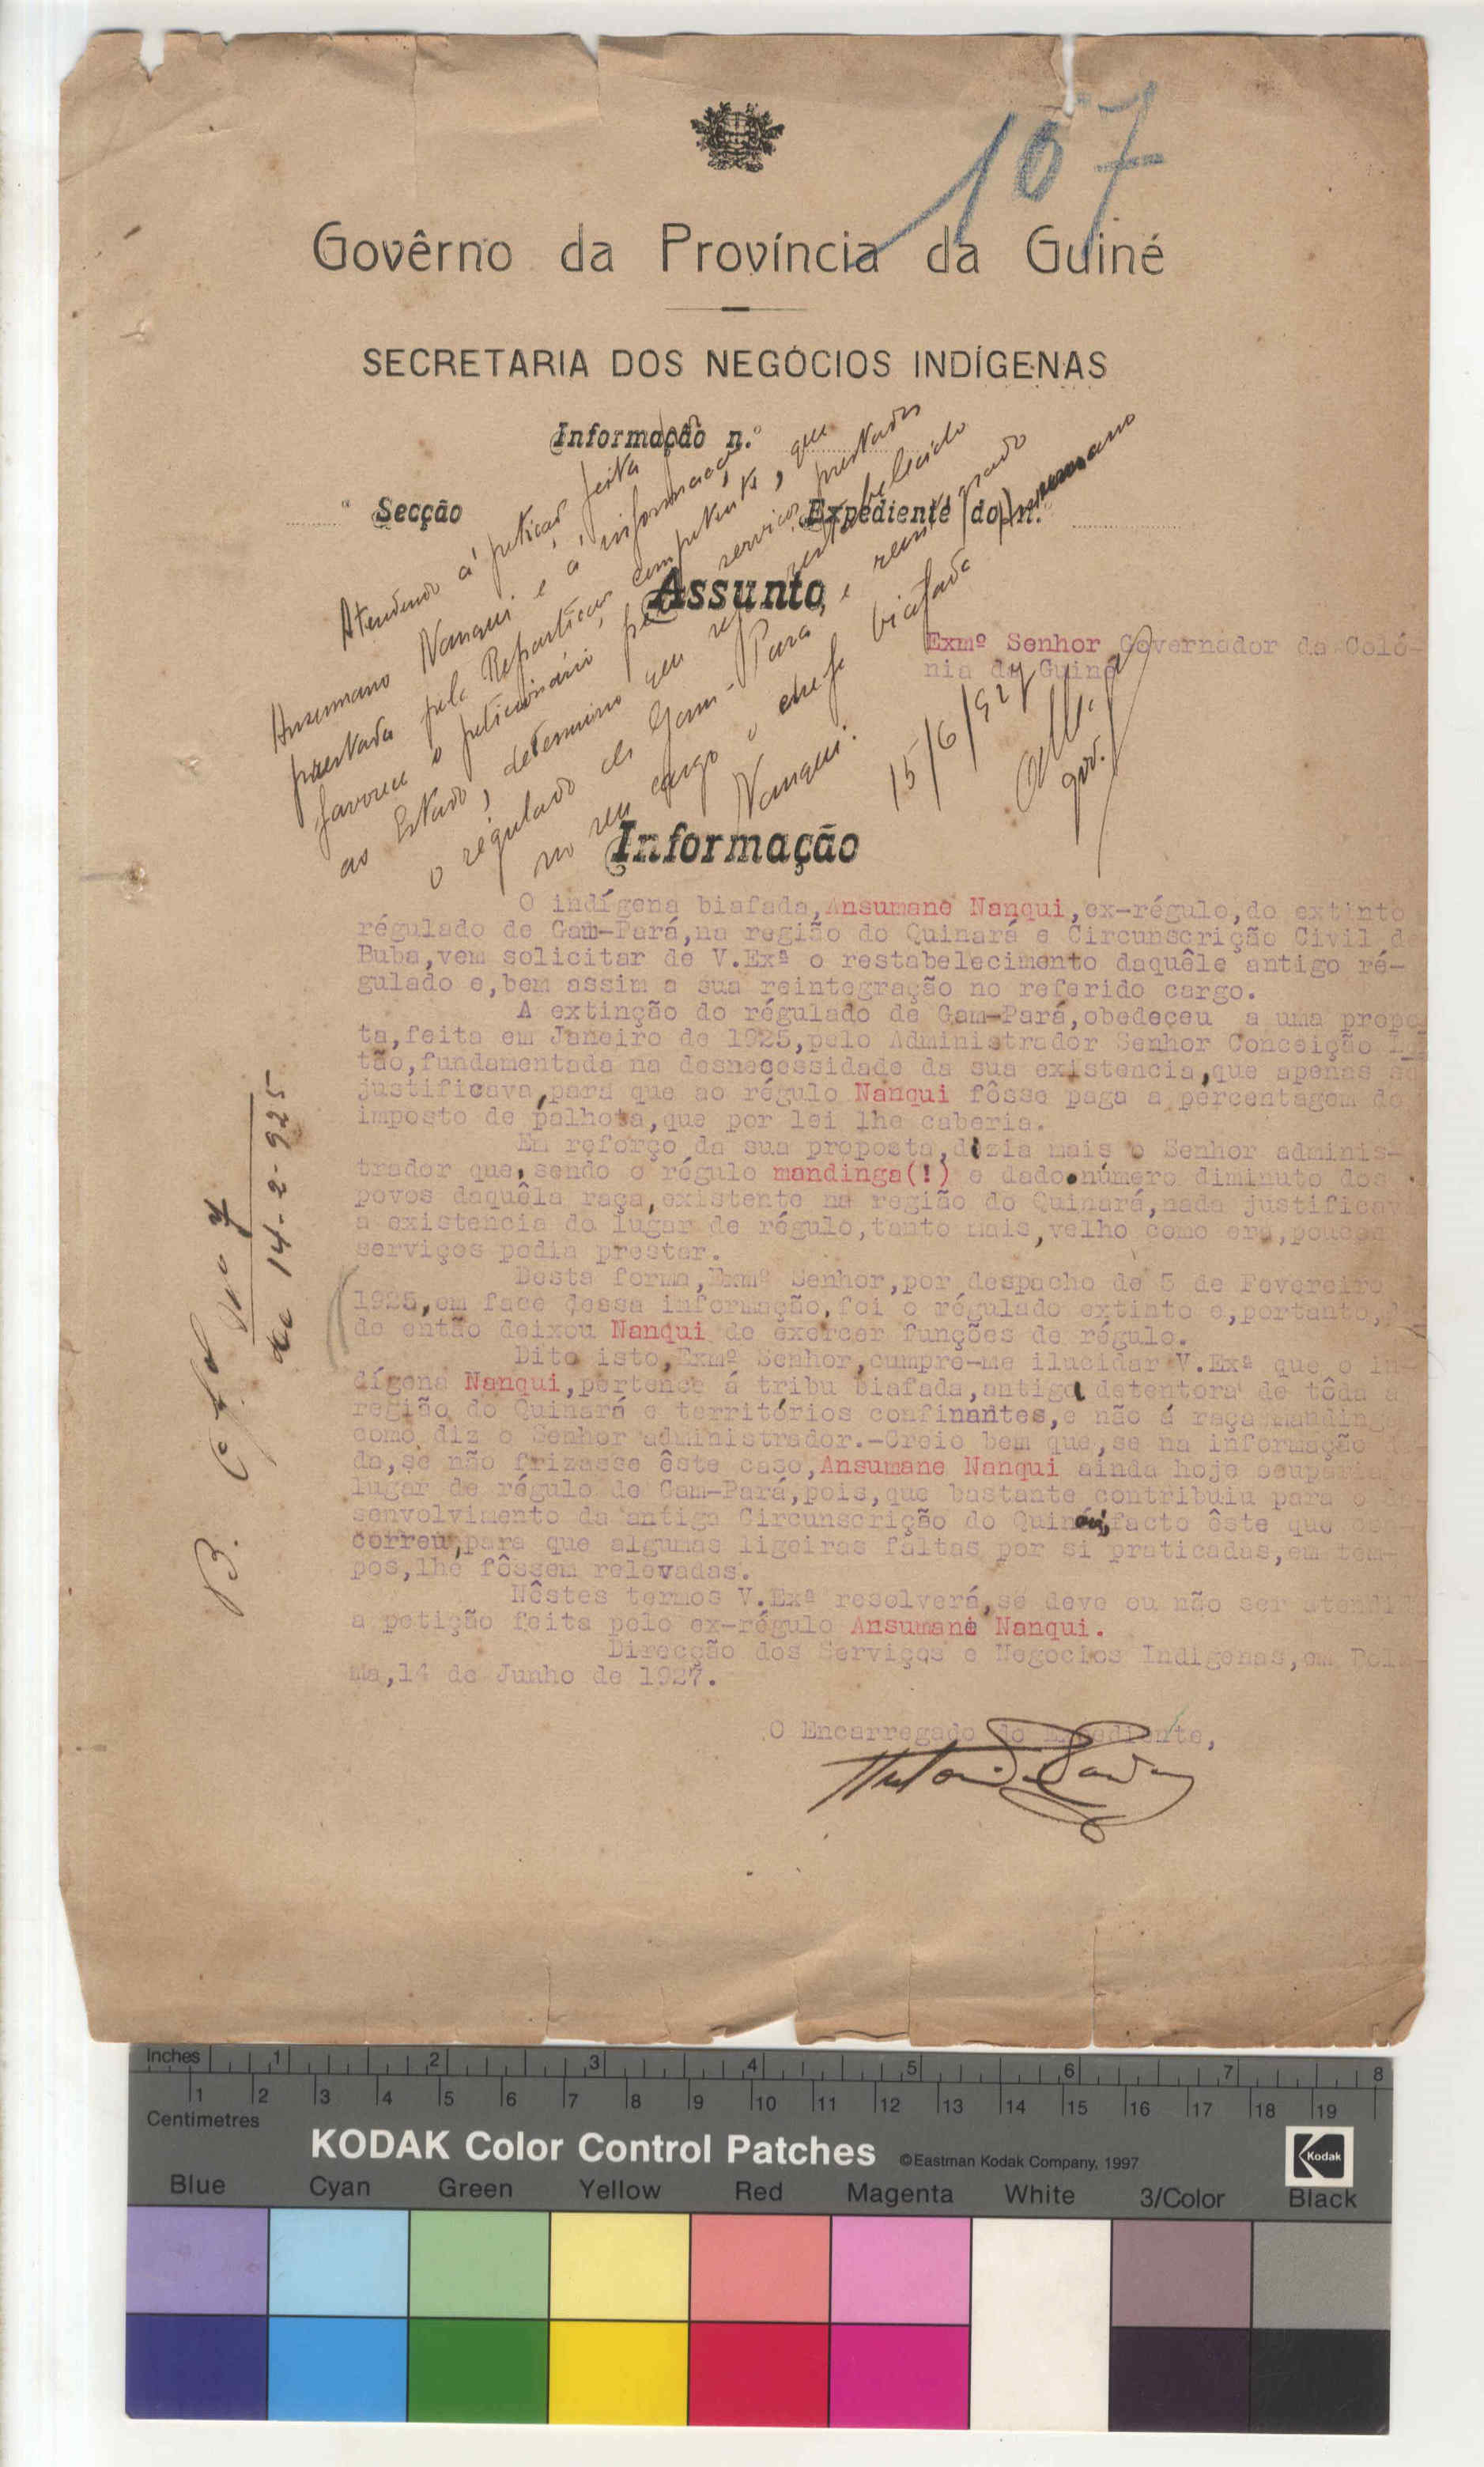 107
Govêrno da Província da Guiné
SECRETARIA DOS NEGÓCIOS INDÍGENAS
Informação n.º
ª Secção
Expediente do n.º
Assunto
Atendendo á petição feita por
Ansumano Nanqui e á informação
prestada pela Repartição competente, que
favorece o peticionário, pelos serviços prestados
ao Estado, determino seu restabelecido
o régulado de Gam-Pará, e reintegrado
no seu cargo o chefe biafada Ansumano
Nanqui.
15/6/927
gov.
Exmº Senhor Governador da Coló-
nia da Guiné
Informação
O indígena biafada,Ansumane Nanqui,ex-régulo,do extinto
régulado de Gam-Pará,na região do Quinará e Circunscrição Civil de
Buba,vem solicitar de V.Exª o restabelecimento daquêle antigo ré-
gulado e,bem assim a sua reintegração no referido cargo.
A extinção do régulado de Gam-Pará,obedeçeu a uma propo
ta,feita em Janeiro de 1925,pelo Administrador Senhor Conceição
tão,fundamentada na desnecessidade da sua existencia,que apenas se
justificava,para que ao régulo Nanqui fôsse paga a percentagem do
imposto de palhota,que por lei lhe caberia.
Em reforço da sua proposta,dizia mais o Senhor adminis-
trador que,sendo o régulo mandinga(!) e dado o número diminuto dos
povos daquêla raça,existente na região do Quinará,nada justificava
a existencia do lugar de régulo,tanto mais,velho como era,poucos
serviços podia prestar.
Desta forma,Exmº Senhor,por despacho de 5 de Fevereiro
1925,em face dessa informação,foi o régulado extinto e,portanto,
de então deixou Nanqui de exercer funções de régulo.
Dito isto,Exmº Senhor,cumpre-me ilucidar V.Exª que o in-
dígena Nanqui,pertence á tribu biafada,antiga detentora de tôda a
região do Quinará e territórios confinantes,e não á raça mandinga
como diz o Senhor administrador.-Creio bem que,se na informação
da,se não frizasse êste caso,Ansumane Nanqui ainda hoje ocuparia o
lugar de régulo de Gam-Pará,pois,que bastante contribuiu para o de
senvolvimento da antiga Circunscrição do Quinará,facto êste que
correu,para que algumas ligeiras faltas por si praticadas,em tem-
pos,lhe fôssem relevadas.
Nêstes termos V.Exª resolverá,se deve ou não ser atendi
a petição feita pelo ex-régulo Ansumane Nanqui.
Direcção dos Serviços e Negocios Indigenas,em Bola
ma,14 de Junho de 1927.
O Encarregado do Expediente,
B. Of. nº 7
de 14-2-925
Inches 1 2 3 4 5 6 7 8
1 2 3 4 5 6 7 8 9 10 11 12 13 14 15 16 17 18 19
Centimetres
KODAK Color Control Patches ©Eastman Kodak Company, 1997
Kodak
Blue Cyan Green Yellow Red Magenta White 3/Color Black